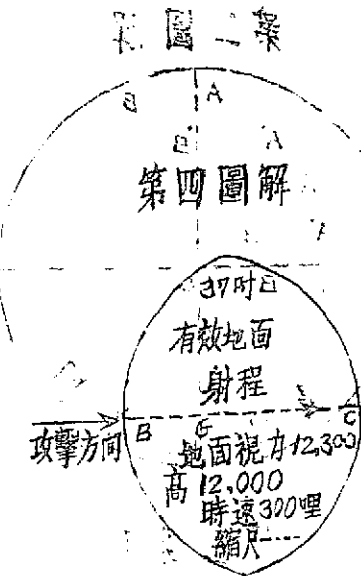 第四圖解
37時
有效地面
射程
攻擊方向
B
G
C
地面視力12,300
高12,000
時速300哩
縮尺----
A